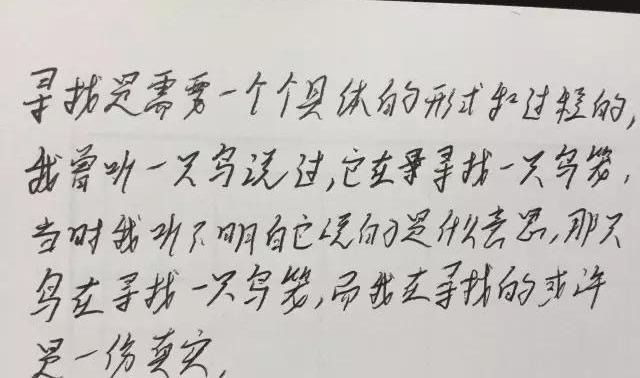 寻找是需要一个个具体的形式和过程的,
我曾听一只鸟说过,它在寻找一只鸟笼,
当时我听不明白它说的是什么意思,那只
鸟在寻找一只鸟笼,而我在寻找的或许
是一份真实,